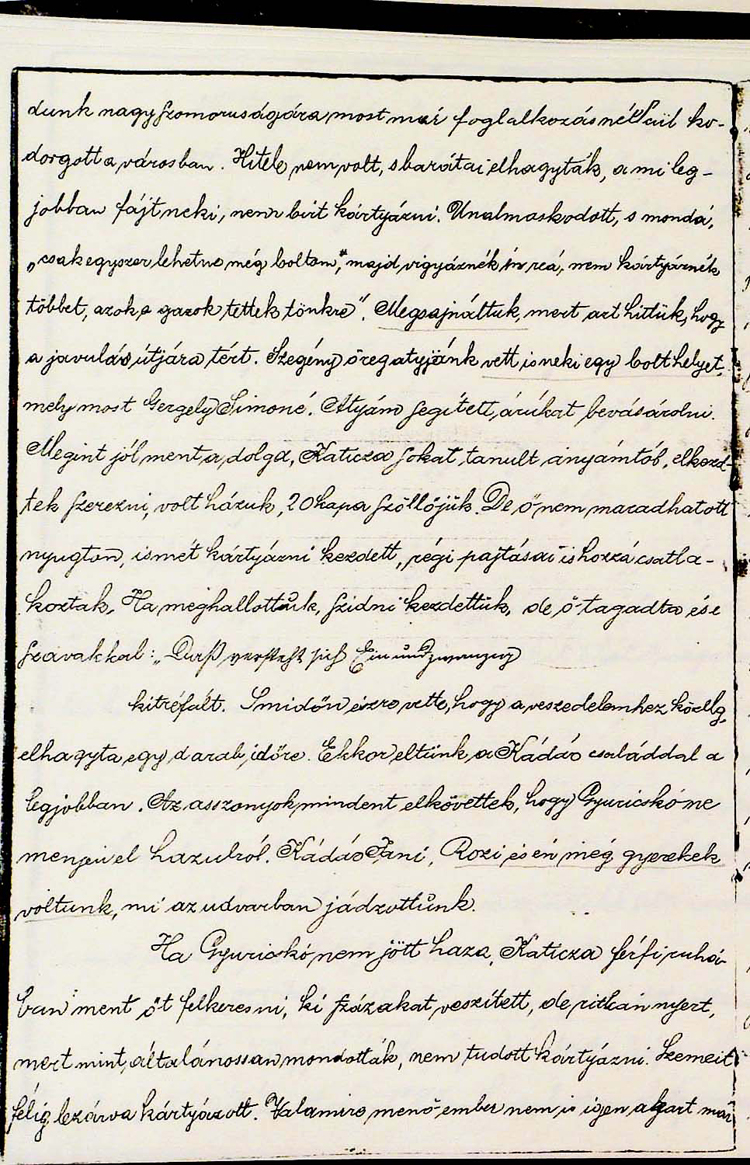 dunk nagy szomoruságára most már foglalkozás nélkül ko-
dorgott a városban. Hitele nem volt, s barátai elhagyták, a mi leg-
jobban fájt neki, nem birt kártyázni. Unalmaskodott, s mondá,
„csak egyszer lehetne még boltom," majd vigyáznék én reá, nem kártyáznék
többet, azok a gazok tettek tönkre". Megsajnáltuk, mert azt hittük, hogy
a javulás útjára tért. Szegény öregatyjánk vett is neki egy bolt helyet,
mely most Gergely Simoné. Atyám segített, árúkat bevásárolni.
Megint jól ment a dolga, Katicza sokat tanult anyámtól, elkezd-
tek szerezni, volt házuk, 20 kapa szöllőjük. De ő nem maradhatott
nyugton, ismét kártyázni kezdett, régi pajtásai is hozzá csatla-
koztak. Ha meghallottuk, szidni kezdettük, de ő tagadta és e
szavakkal: „Daß versteht sich Ein und zwanzig
kitréfált. S midőn észre vette, hogy a veszedelemhez közelg,
elhagyta egy darab időre. Ekkor éltünk a Kádás családdal a
legjobban. Az asszonyok mindent elkövettek, hogy Gyuricskó ne
menjen el hazulról. Kádás Fani, Rozi, és én még gyerekek
voltunk, mi az udvarban jádzottunk.
Ha Gyuricskó nem jött haza, Katicza férfi ruhá-
ban ment őt felkeresni, ki százakat veszített, de ritkán nyert,
mert mint általánossan mondották, nem tudott kártyázni. Szemeit
félig lezárva kártyázott. Valamire menő ember nem is igen akart már